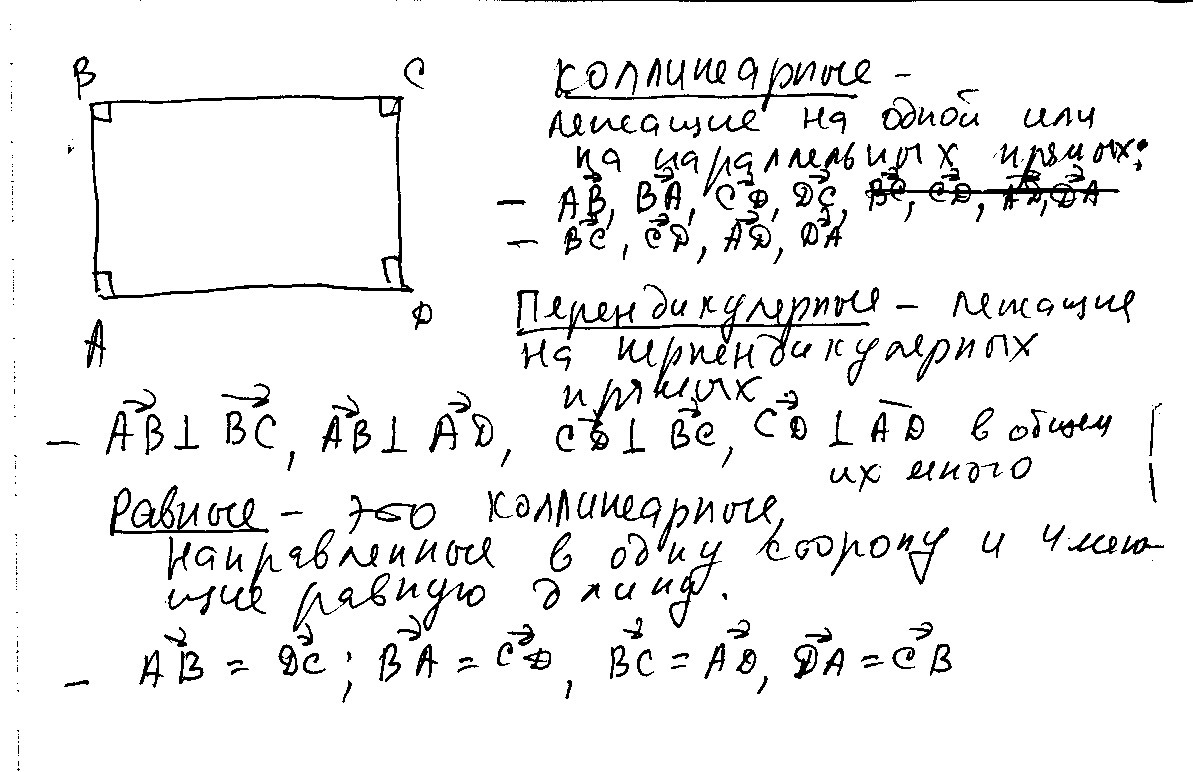 B C
A D
Коллинеарные –
лежащие на одной или
на параллельных прямых:
– AB, BA, CD, DC, BC, CD, AD, DA
– BC, CD, AD, DA
Перендикулерные – лежащие
на перпендикулерных
прямых
– AB ⊥ BC, AB ⊥ AD, CD ⊥ BC, CD ⊥ AD в общем
их много
Равные – это коллинеарные,
направленные в одну сторону и имею-
щие равную длину.
– AB = DC; BA = CD, BC = AD, DA = CB